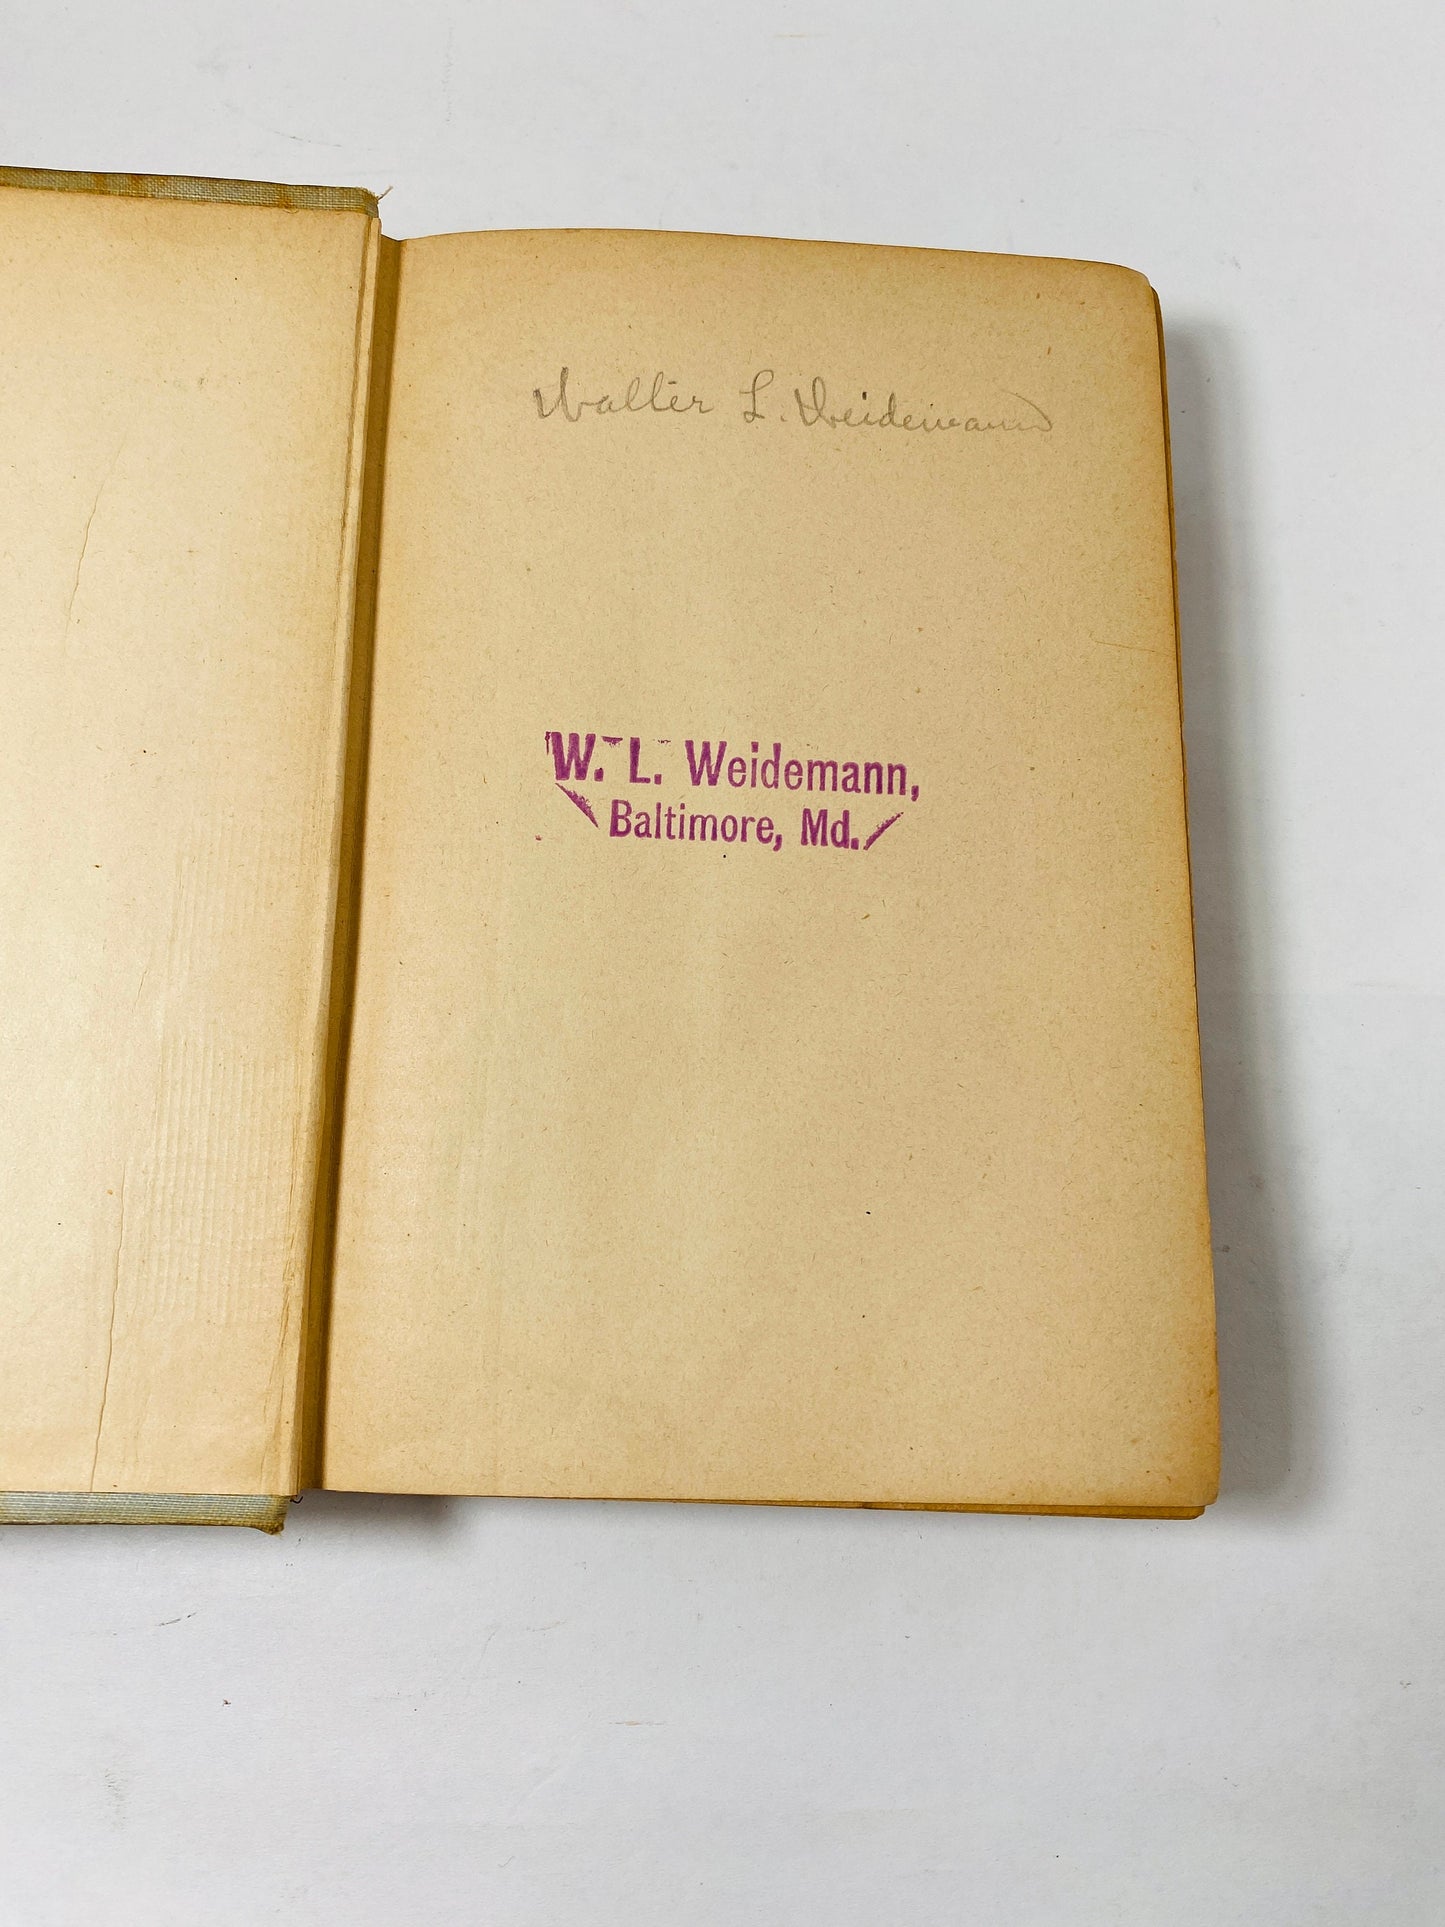 Walter L. Weidemann
W. L. Weidemann,
Baltimore, Md.